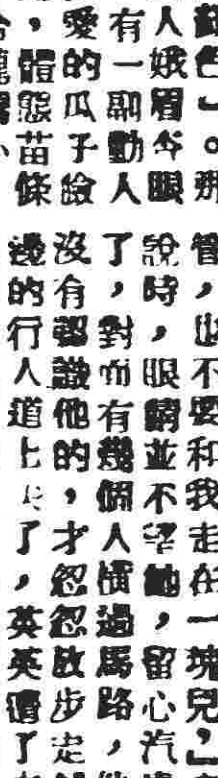 色」。那
人娥眉令眼
有一副動人
愛的瓜子臉
，體態苗條
管，也不要和我走在一塊兒，」
說時，眼睛並不望她，留心汽
了，對面有幾個人橫過馬路，
沒有認識他的，才忽忽放步走
邊的行人道上了，英英遭了